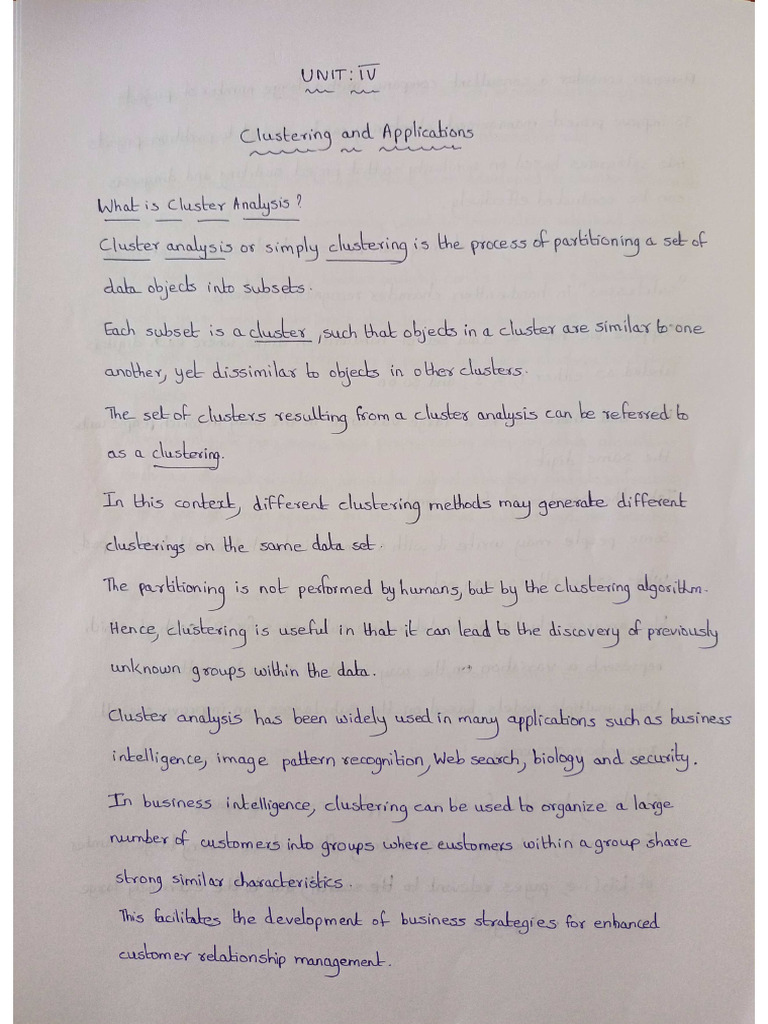 UNIT: IV
Clustering and Applications
What is Cluster Analysis?
Cluster analysis or simply clustering is the process of partitioning a set of
data objects into subsets.
Each subset is a cluster, such that objects in a cluster are similar to one
another, yet dissimilar to objects in other clusters.
The set of clusters resulting from a cluster analysis can be referred to
as a clustering.
In this context, different clustering methods may generate different
clusterings on the same data set.
The partitioning is not performed by humans, but by the clustering algorithm.
Hence, clustering is useful in that it can lead to the discovery of previously
unknown groups within the data.
Cluster analysis has been widely used in many applications such as business
intelligence, image pattern recognition, Web search, biology and security.
In business intelligence, clustering can be used to organize a large
number of customers into groups where customers within a group share
strong similar characteristics.
This facilitates the development of business strategies for enhanced
customer relationship management.